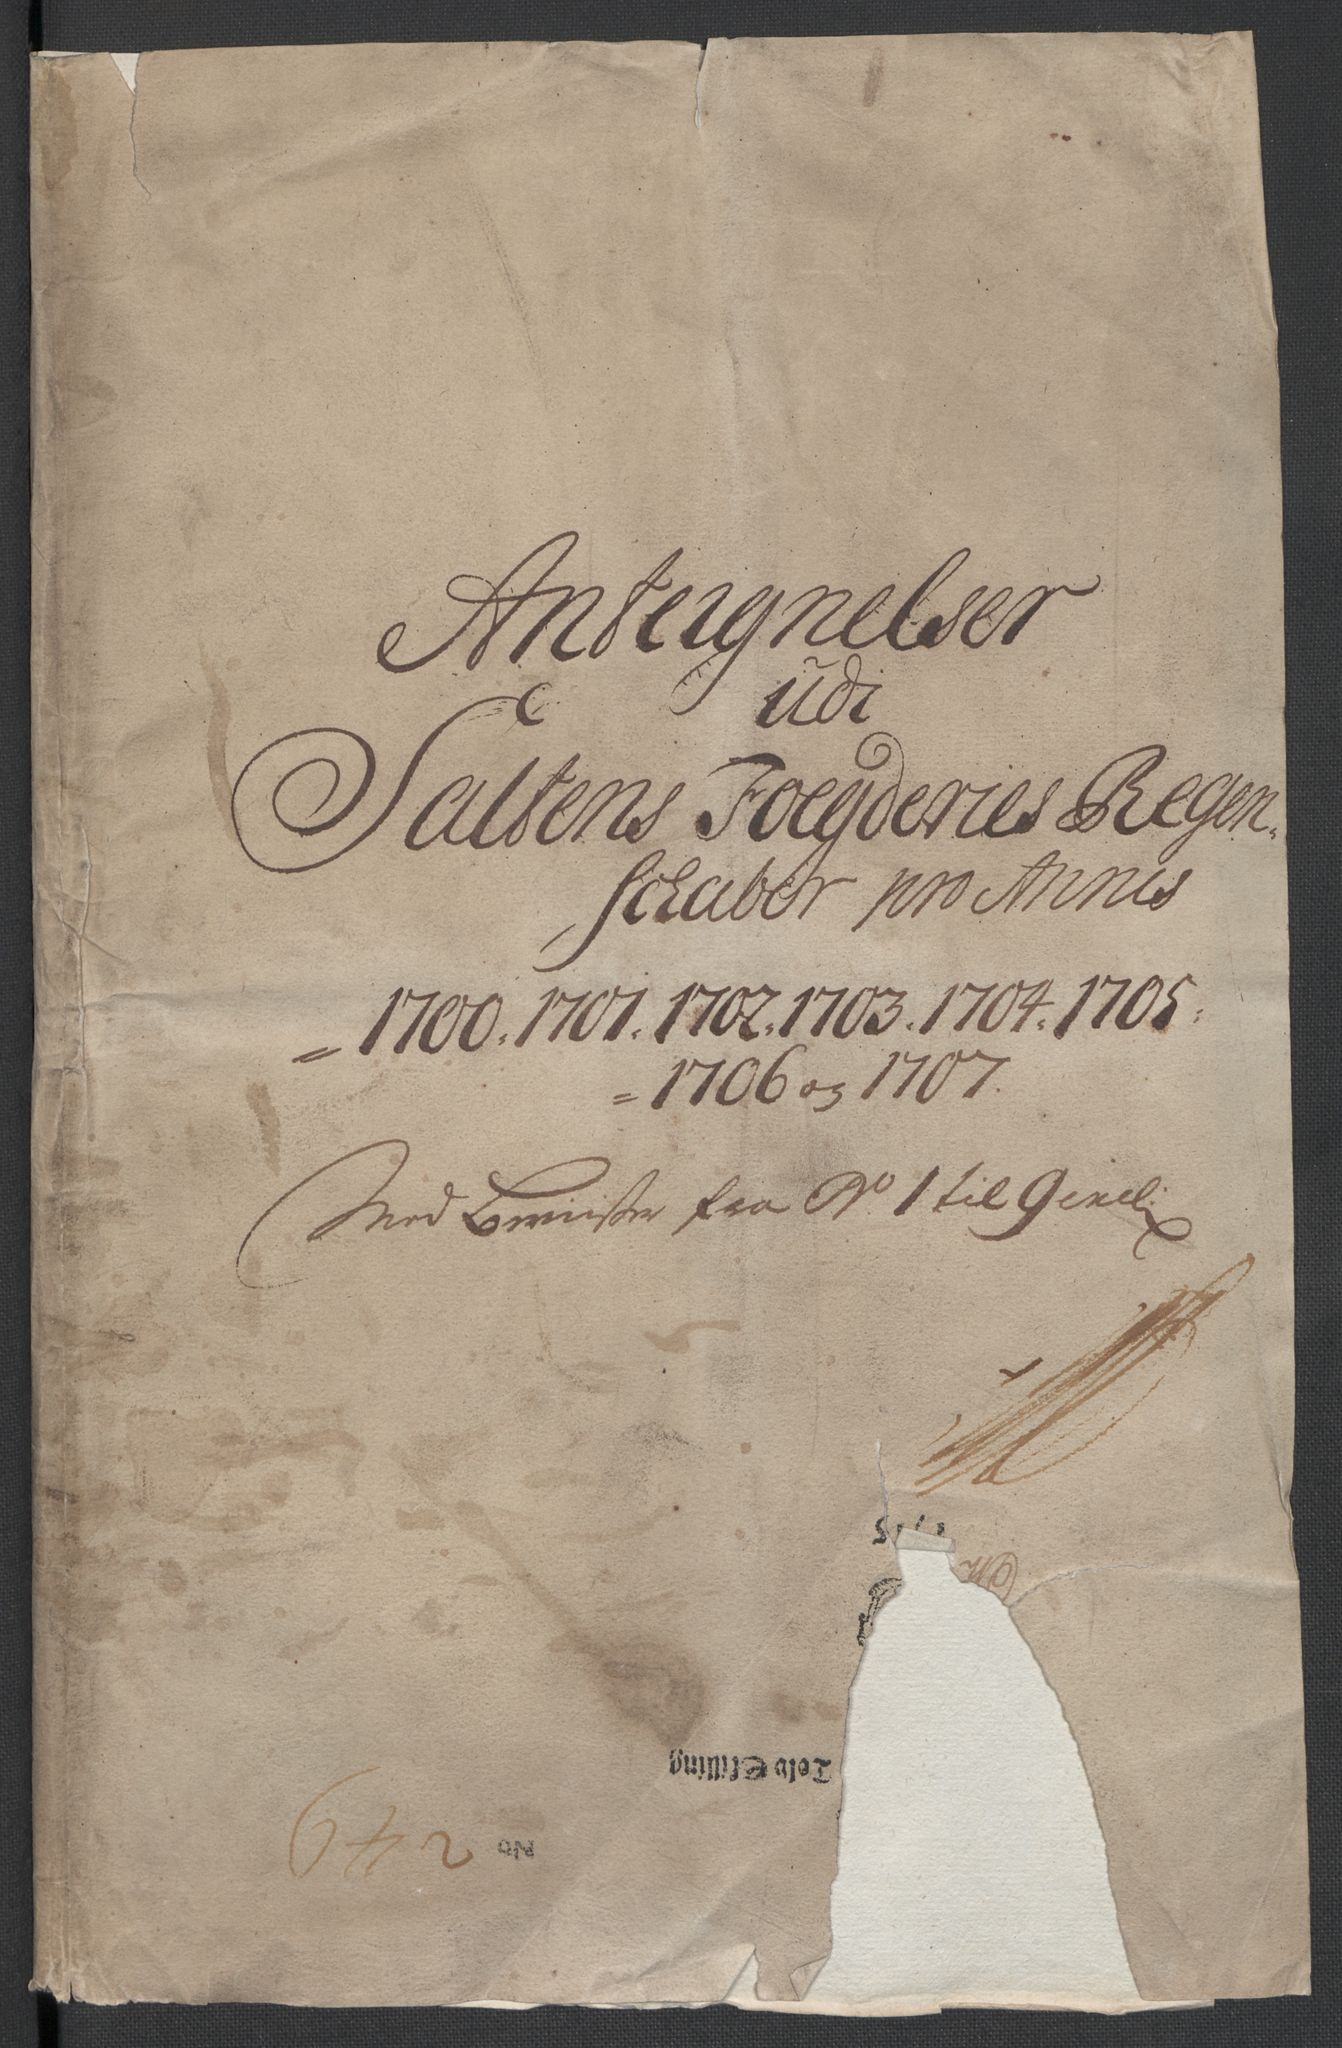 Antegnelser
udi
Saltens Foegderies Regen-
schaber pro Annis
= 1700. 1701. 1702. 1703. 1704. 1705.
= 1706 og 1707.
Med Beviiser fra No 1 til 9 incl:
Tolv Skilling
No 249